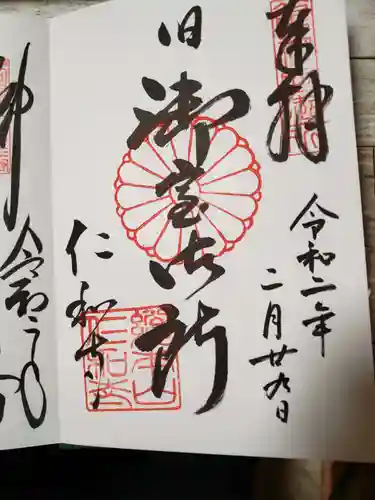 奉拝
令和二年
二月廿九日
旧
御室御所
仁和寺